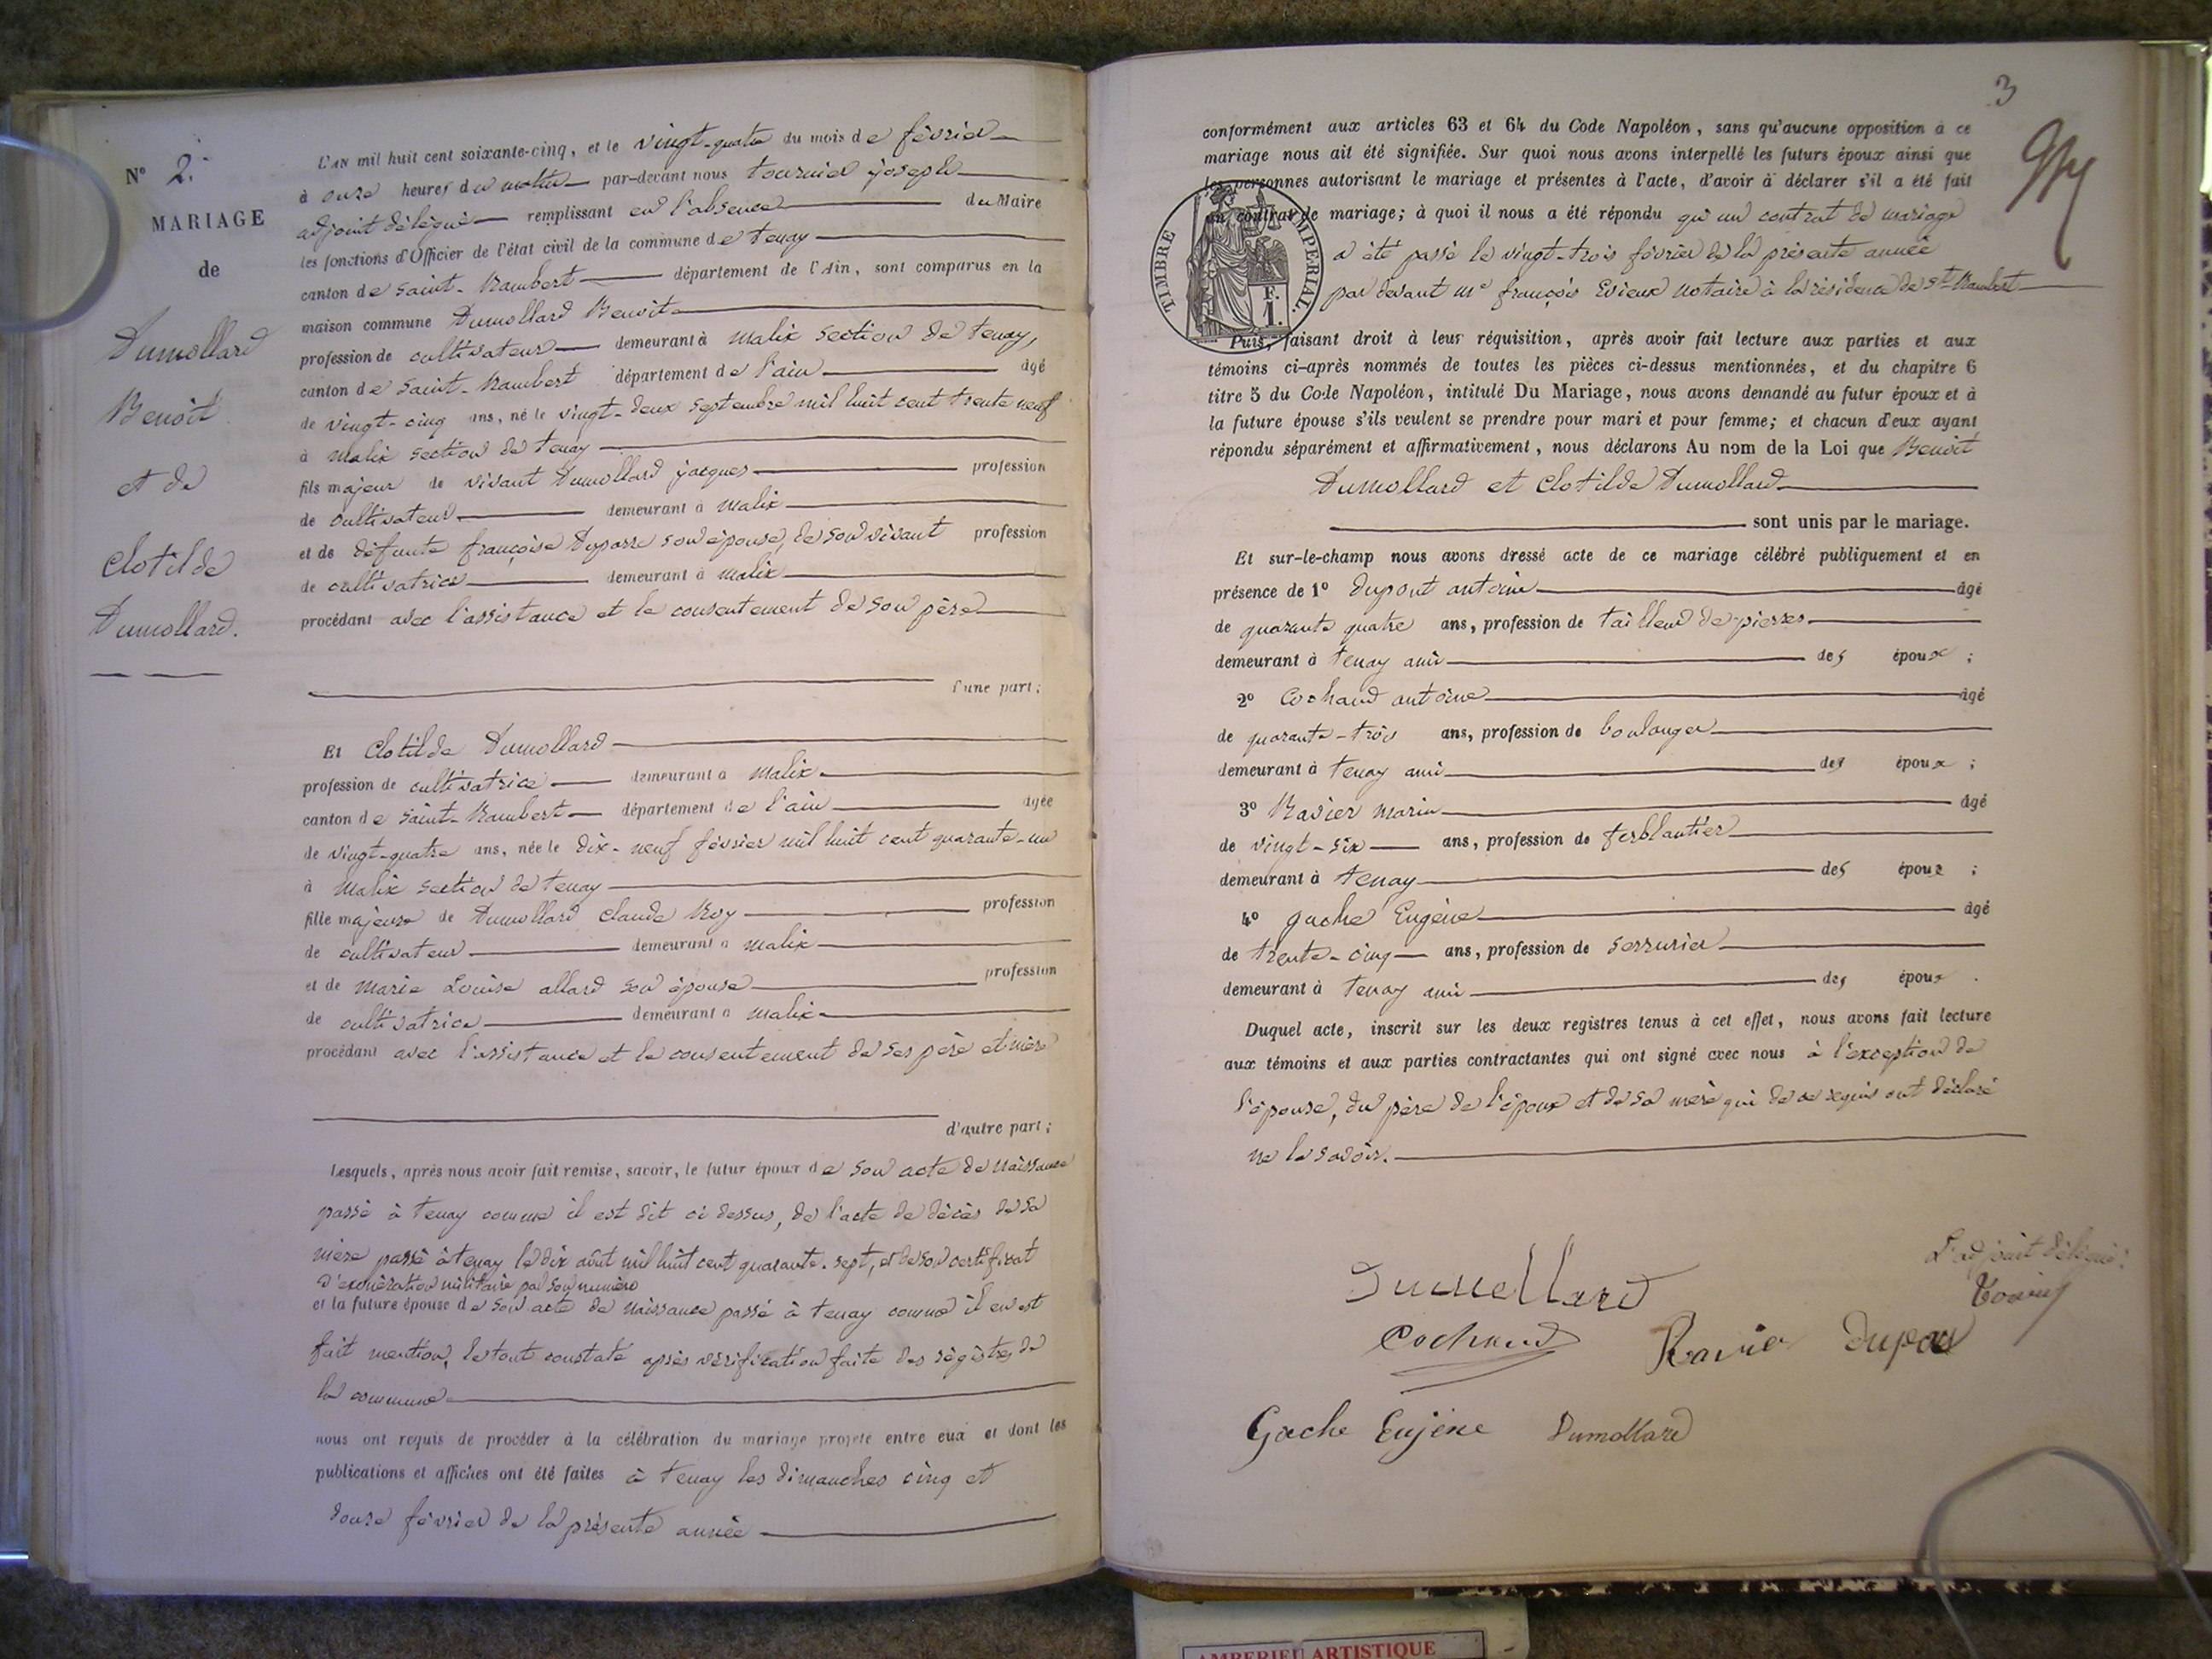 N° 2.
MARIAGE
de
Dumollard
Benoit
et de
Clotilde
Dumollard.
L'AN mil huit cent soixante-cinq, et le vingt-quatre du mois de février
à onze heures du matin par-devant nous tournier joseph
adjoint délégué remplissant en l'absence du Maire
les fonctions d'Officier de l'état civil de la commune de tenay
canton de saint-Rambert département de l'Ain, sont comparus en la
maison commune Dumollard Benoit
profession de cultivateur demeurant à malix section de tenay,
canton de saint-Rambert département de l'ain âgé
de vingt-cinq ans, né le vingt-deux septembre mil huit cent trente neuf
à malix section de tenay
fils majeur de vivant Dumollard jacques profession
de cultivateur demeurant à malix
et de défunte françoise son épouse, de son vivant profession
de cultivatrice demeurant à malix
procédant avec l'assistance et le consentement de son père
d'une part;
Et Clotilde Dumollard
profession de cultivatrice demeurant à malix
canton de saint-Rambert département de l'ain âgée
de vingt-quatre ans, née le dix-neuf février mil huit cent quarante-un
à malix section de tenay
fille majeure de Dumollard claude Roy profession
de cultivateur demeurant à malix
et de marie Louise allard son épouse profession
de cultivatrice demeurant à malix
procédant avec l'assistance et le consentement de ses père et mère
d'autre part;
Lesquels, après nous avoir fait remise, savoir, le futur époux de son acte de naissance
passé à tenay comme il est dit ci dessus, de l'acte de décès de sa
mère passé à tenay le dix août mil huit cent quarante-sept, et de son certificat
d'exonération militaire par son numéro
et la future épouse de son acte de naissance passé à tenay comme il en est
fait mention, le tout constaté après vérification faite des régistres de
la commune
nous ont requis de procéder à la célébration du mariage projeté entre eux et dont les
publications et affiches ont été faites à tenay les dimanches cinq et
douze février de la présente année
3
conformément aux articles 63 et 64 du Code Napoléon, sans qu'aucune opposition à ce
mariage nous ait été signifiée. Sur quoi nous avons interpellé les futurs époux ainsi que
les personnes autorisant le mariage et présentes à l'acte, d'avoir à déclarer s'il a été fait
un contrat de mariage; à quoi il nous a été répondu qu'un contrat de mariage
a été passé le vingt-trois février de la présente année
par devant me françois Evieux notaire à la résidence de St Rambert
TIMBRE IMPERIAL
F.
1.
Puis, faisant droit à leur réquisition, après avoir fait lecture aux parties et aux
témoins ci-après nommés de toutes les pièces ci-dessus mentionnées, et du chapitre 6
titre 5 du Code Napoléon, intitulé Du Mariage, nous avons demandé au futur époux et à
la future épouse s'ils veulent se prendre pour mari et pour femme; et chacun d'eux ayant
répondu séparément et affirmativement, nous déclarons Au nom de la Loi que Benoit
Dumollard et Clotilde Dumollard
sont unis par le mariage.
Et sur-le-champ nous avons dressé acte de ce mariage célébré publiquement et en
présence de 1° dupont antoine âgé
de quarante quatre ans, profession de tailleur de pierres
demeurant à tenay ami des époux ;
2° Cochaud antoine âgé
de quarante-trois ans, profession de boulanger
demeurant à tenay ami des époux ;
3° Ravier marin âgé
de vingt-six ans, profession de ferblantier
demeurant à tenay des époux ;
4° gache Eugène âgé
de trente-cinq ans, profession de serrurier
demeurant à tenay ami des époux .
Duquel acte, inscrit sur les deux registres tenus à cet effet, nous avons fait lecture
aux témoins et aux parties contractantes qui ont signé avec nous à l'exception de
l'épouse, du père de l'époux et de sa mère qui de ce requis ont déclaré
ne le savoir.
L'adjoint délégué:
Dumollard
Cochaud Ravier Dupon
Gache Eujène Dumollard
AMBERIEU ARTISTIQUE